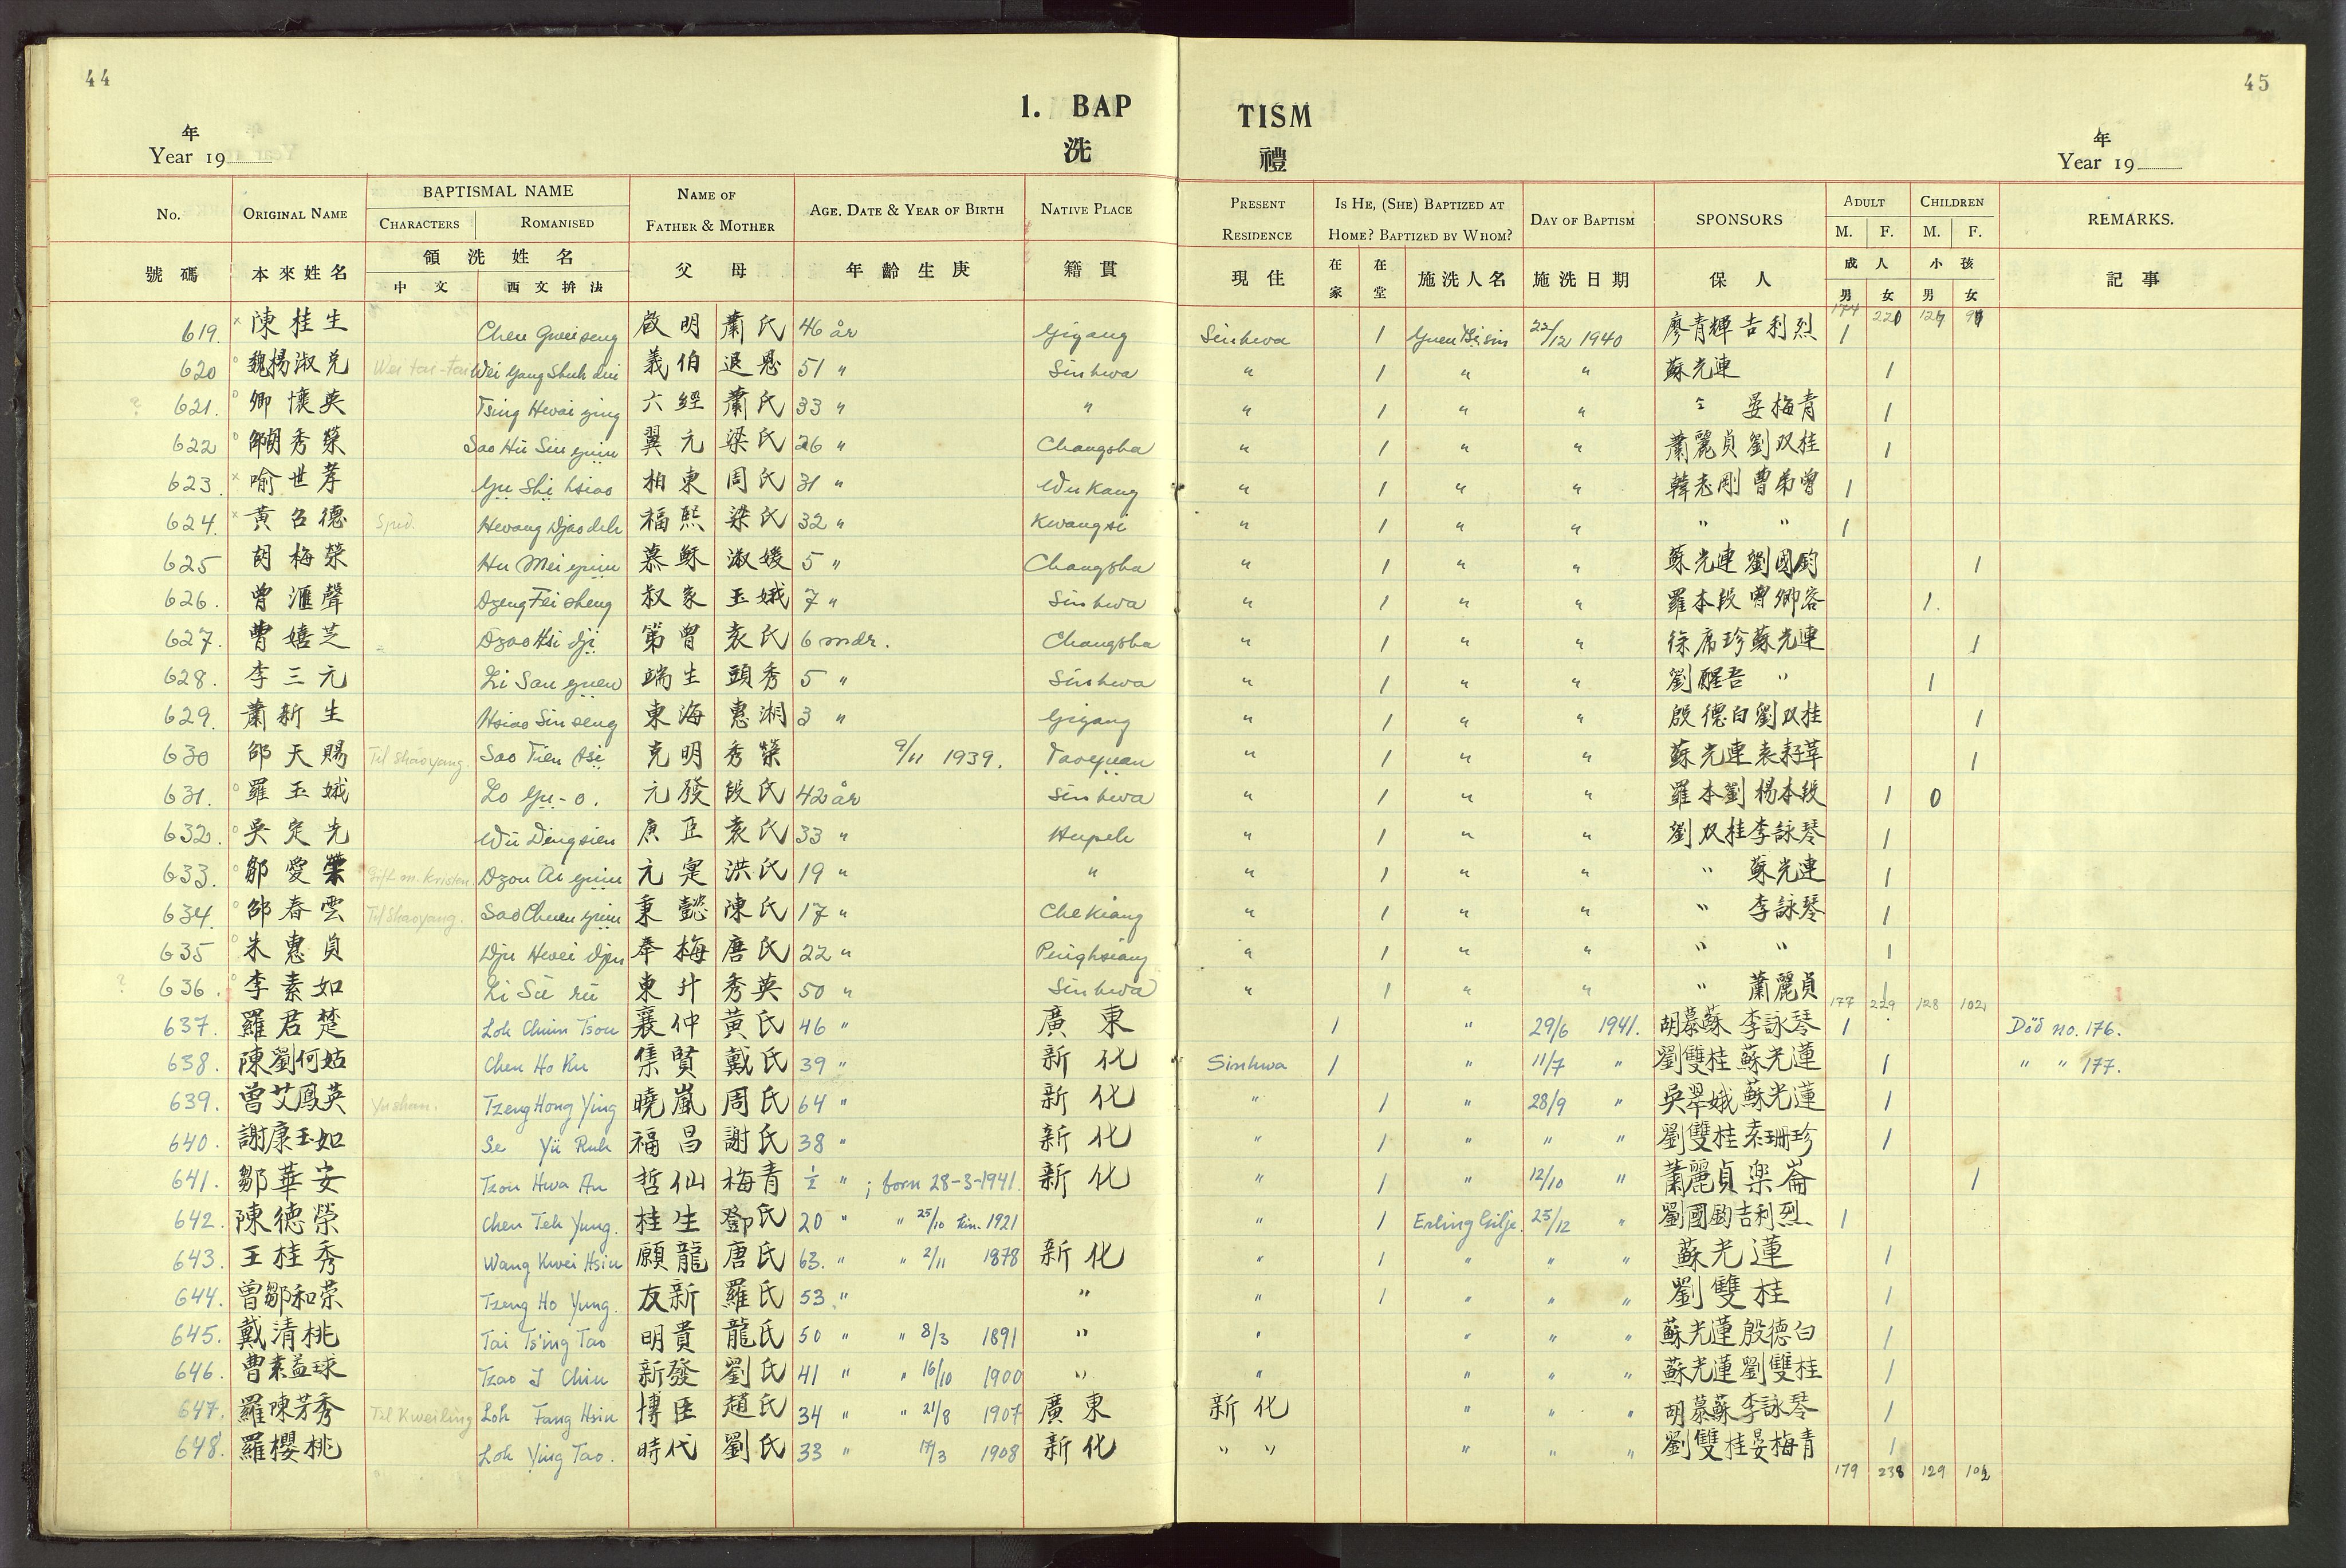 44
45
1. BAP
TISM
年
Year 19
洗
禮
年
Year 19
No. ORIGINAL NAME BAPTISMAL NAME NAME OF FATHER & MOTHER AGE. DATE & YEAR OF BIRTH NATIVE PLACE PRESENT RESIDENCE IS HE, (SHE) BAPTIZED AT HOME? BAPTIZED BY WHOM? DAY OF BAPTISM SPONSORS ADULT CHILDREN REMARKS.
CHARACTERS ROMANISED M. F. M. F.
號碼 本來姓名 領洗姓名 父母 年齡生庚 籍貫 現住 在家 在堂 施洗人名 施洗日期 保人 成人 小孩 記事
中文 西文拚法 男 女 男 女
619. × 陳桂生 Chen Gwei seng 啟明 蕭氏 46 år Yiyang Sinhwa 1 Yuen Hsin 22/12 1940 廖青輝 吉利烈 1
620 ° 魏楊淑兑 Wei tai-tai Wei Yang Shuh dui 義伯 退恩 51 " Sinhwa " 1 " " 蘇光連 1
621. ° 卿懷英 Tsing Hwai ying 六經 蕭氏 33 " " " 1 " " 晏梅青 1
622 ° 邵胡秀榮 Sao Hu Siu yuin 翼元 梁氏 26 " Changsha " 1 " " 蕭麗貞 劉双桂 1
623. × 喻世孝 Yu Shi hsiao 柏東 周氏 31 " Wukang " 1 " " 韓志剛 曹弟曾 1
624. × 黃召德 Hwang Djao deh 福熙 梁氏 32 " Kwangsi " 1 " " " " 1
625 胡梅榮 Hu Mei yuin 慕蘇 淑媛 5 " Changsha " 1 " " 蘇光連 劉國鈞 1
626. 曾滙聲 Dzeng Fei sheng 叔家 玉娥 7 " Sinhwa " 1 " " 羅本段 曹卿容 1.
627. 曹嬉芝 Dzao Hsi dji 第曾 袁氏 6 mdr. Changsha " 1 " " 徐席珍 蘇光連 1
628. 李三元 Li San yuen 端生 頭秀 5 " Sinhwa " 1 " " 劉醒吾 " 1
629. 蕭新生 Hsiao Sin seng 東海 惠湘 3 " Yiyang " 1 " " 殷德白 劉双桂 1
630 邵天賜 Til Shaoyang. Sao Tien tsi 克明 秀榮 9/11 1939. Taoyuan " 1 " " 蘇光連 1
631. ° 羅玉娥 Lo Yu-o. 元發 段氏 42 år Sinhwa " 1 " " 羅本劉 楊本段 1 0
632. ° 吳定先 Wu Ding sien 庚臣 袁氏 33 " Hupeh " 1 " " 劉双桂 李詠琴 1
633. ° 鄒愛榮 Gift m. kristen Dzou Ai yuin 元寔 洪氏 19 " " " 1 " " " 蘇光連 1
634. ° 邵春雲 Til Shaoyang. Sao Chuen yuin 秉懿 陳氏 17 " Chekiang " 1 " " " 李詠琴 1
635 ° 朱惠貞 Dju Hwei djen 奉梅 唐氏 22 " Pinghsiang " 1 " " " " 1
? 636. ° 李素如 Li Su ru 東升 秀英 50 " Sinhwa " 1 " " " 蕭麗貞 1
177 229 128 102
637. 羅君楚 Loh Chuin Tsou 襄仲 黃氏 46 " 廣東 1 " 29/6 1941. 胡慕蘇 李詠琴 1 Död no. 176.
638. 陳劉何姑 Chen Ho Ku 集賢 戴氏 39 " 新化 Sinhwa 1 " 11/7 " 劉雙桂 蘇光蓮 1 " " 177.
639. 曾艾鳳英 Yushan. Tzeng Hong Ying 曉嵐 周氏 64 " 新化 " 1 " 28/9 " 吳翠娥 蘇光蓮 1
640. 謝康玉如 Se Yü Ruh 福昌 謝氏 38 " 新化 " 1 " " " 劉雙桂 袁珊珍 1
641. 鄒華安 Tzou Hwa An 哲仙 梅青 ½ " ; born 28-3-1941. 新化 " 1 " 12/10 " 蕭麗貞 梁崙 1
642. 陳德榮 Chen Teh Yung. 桂生 鄧氏 20 " " 25/10 1921 " 1 Erling Gilje. 25/12 " 劉國鈞 吉利烈 1
643. 王桂秀 Wang Kwei Hsiu 願龍 唐氏 63. " " 2/11 1878 新化 " 1 " " " 蘇光蓮 1
644. 曾鄒和荣 Tzeng Ho Yung. 友新 羅氏 53. " " " 1 " " " 劉雙桂 1
645. 戴清桃 Tai Ts'ing Tao 明貴 龍氏 50 " " 8/3 1891 " " " " " 蘇光蓮 殷德白 1
646. 曹袁益球 Tzao I Chiu 新發 劉氏 41 " " 16/10 1900 " " " " " 蘇光蓮 劉雙桂 1
647. 羅陳芳秀 Til Kweiling Loh Fang Hsiu 博臣 趙氏 34 " " 21/8 1907 廣東 新化 " " " 胡慕蘇 李詠琴 1
648. 羅櫻桃 Loh Ying Tao. 時代 劉氏 33 " 17/3 1908 新化 " " " " " 劉雙桂 晏梅青 1
179 238 129 102